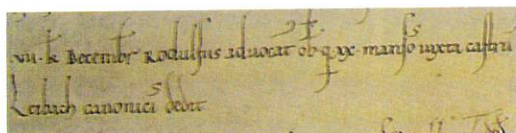 vii · k̄ Decembr̄ Rodulfus advocat ob · q · xx · mansos iuxta castrū
Leibach canonicis dedit